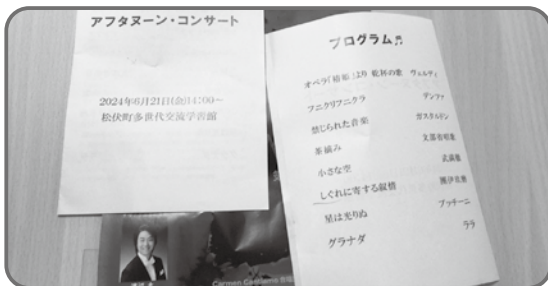 アフタヌーン・コンサート
2024年6月21日(金)14:00～
松伏町多世代交流学習館
プログラム♬
オペラ「椿姫」より 乾杯の歌 ヴェルディ
フニクリフニクラ デンツァ
禁じられた音楽 ガスタルドン
茶摘み 文部省唱歌
小さな空 武満徹
しぐれに寄する叙情 團伊玖磨
星は光りぬ プッチーニ
グラナダ ララ
Carmen